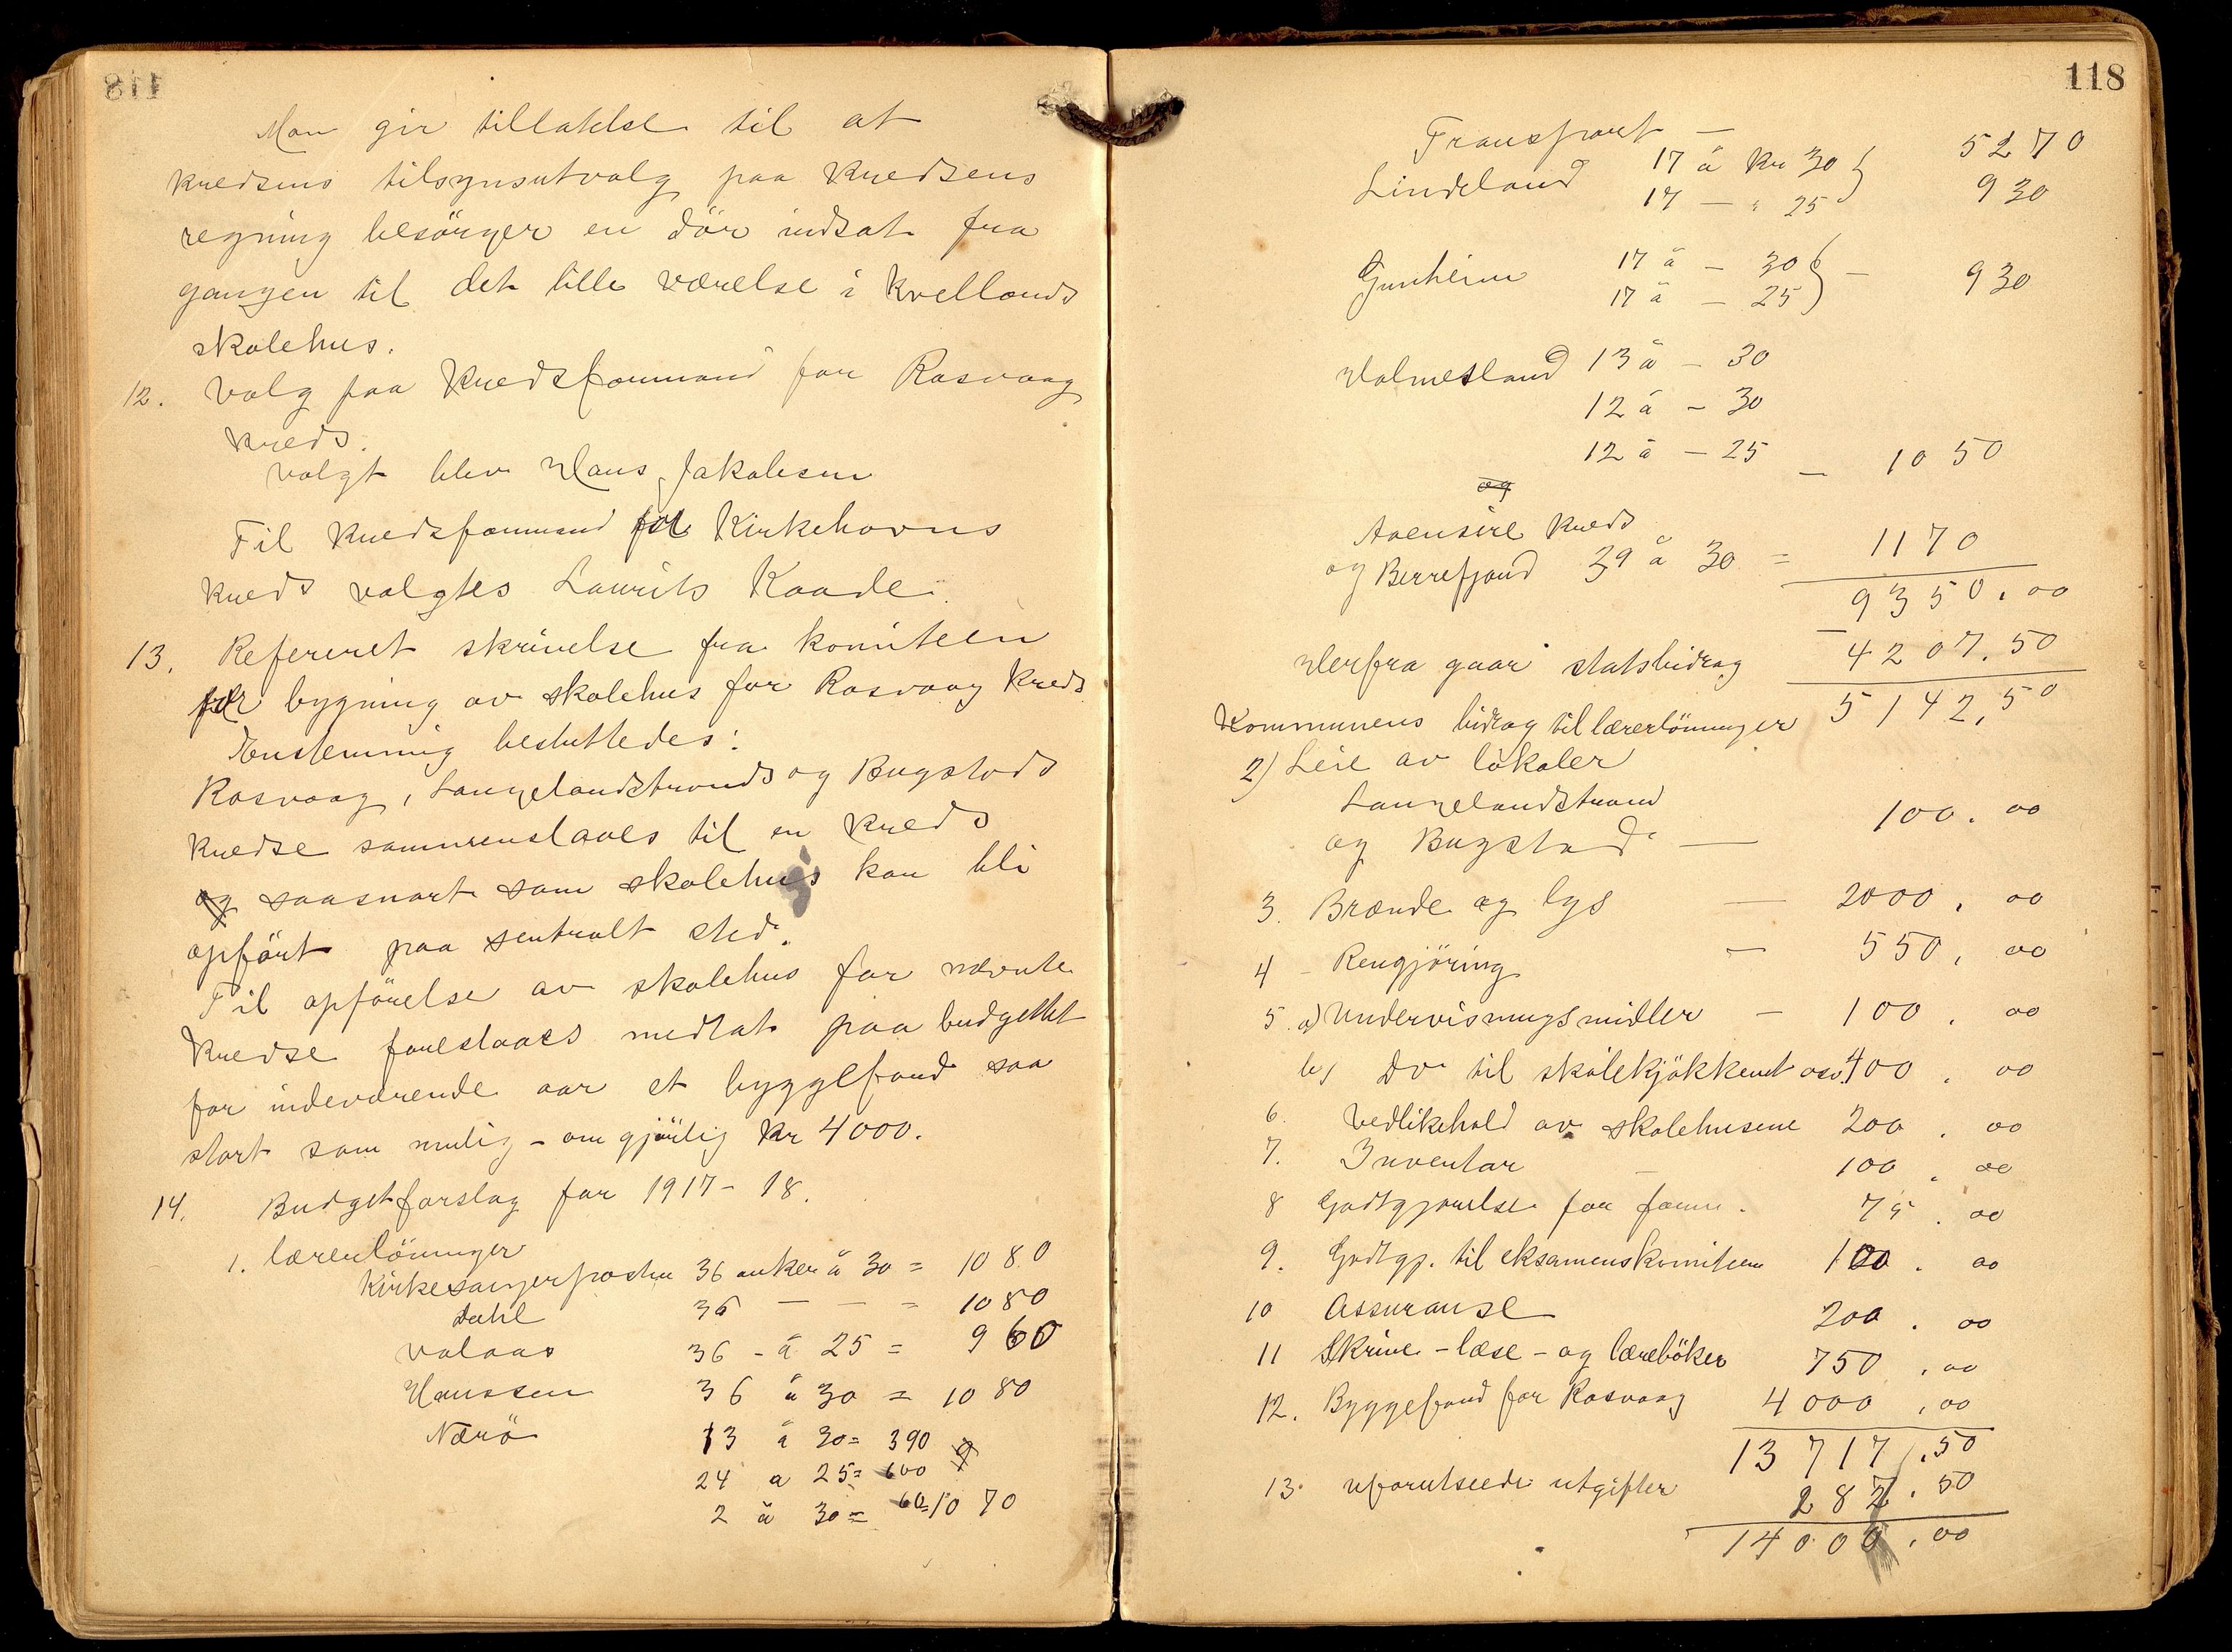 Man gir tillatelse til at
kredsens tilsynsutvalg paa kredsens
regning besörger en dör indsat fra
gangen til det lille værelse i Kvellands
skolehus.
12. Valg paa kredsformand for Rasvaag
kreds.
Valgt blev Hans Jakobsen
Til kredsformand for Kirkehavns
kreds valgtes Laurits Kaade.
13. Refereret skrivelse fra komiteen
for bygning av skolehus for Rasvaag kreds
Enstemmig besluttedes:
Rasvaag, Langelandstrands og Bugstads
kredse sammenslaaes til en kreds
og saasnart som skolehus kan bli
opfört paa sentralt sted.
Til opförelse av skolehus for nævnte
kredse foreslaaes medtat paa budgettet
for indeværende aar et byggefond saa
stort som mulig - om gjörlig kr 4000.
14. Budgetforslag for 1917-18.
1. lærerlönninger
Kirkesangerposten 36 uker á 30 = 1080
Dahl 36 — — = 1080
Valaas 36 - á 25 = 960
Hanssen 36 á 30 = 1080
Nærö 13 á 30 = 390
24 a 25 = 600
2 á 30 = 60 = 1070
118
Transport — 5270
Lindeland 17 á kr 30 } 930
17 — " 25
Gunheim 17 á — 30 } — 930
17 á — 25
Holmesland 13 á — 30
12 á — 30
12 á — 25 — 1050
og
Aaensire kreds
og Berrefjord 39 á 30 = 1170
9350.00
Herfra gaar statsbidrag — 4207.50
Kommunens bidrag til lærerlönninger 5142,50
2) Leie av lokaler
Langelandstrand
og Bugstad — 100.00
3. Brænde og lys — 2000,00
4 - Rengjöring — 550,00
5. a) Undervisningsmidler — 100.00
b) Do til skolekjökkenet osv. 400.00
6. Vedlikehold av skolehusene 200.00
7. Inventar — 100.00
8 Godtgjörelse for form. 75.00
9. Godtgj. til eksamenskomiteen 100.00
10 Assuranse 200.00
11 Skrive - læse - og læreböker 750.00
12. Byggefond for Rasvaag 4000,00
13717,50
13. uforutseede utgifter 282.50
14000,00